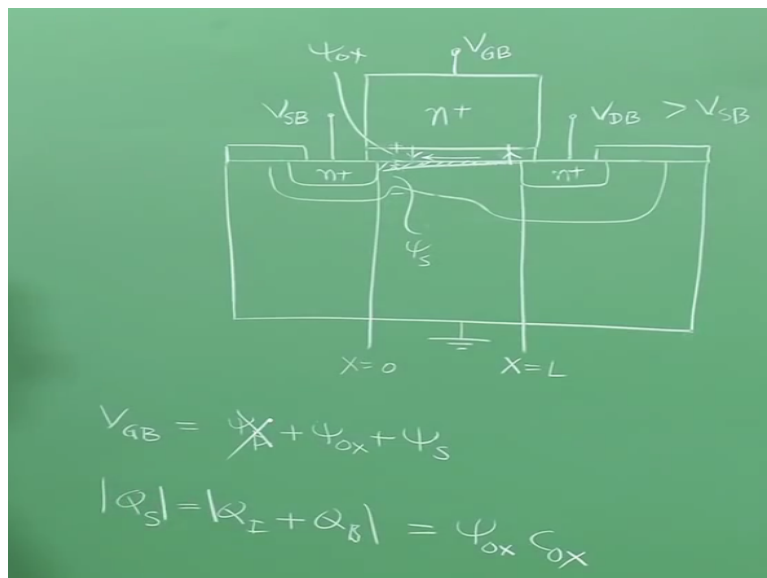 ψox V_GB
n+
V_SB V_DB > V_SB
n+ n+
ψ_S
X=0 X=L
V_GB = ψ_P + ψ_OX + ψ_S
|Q_S| = |Q_I + Q_B| = ψ_OX C_OX